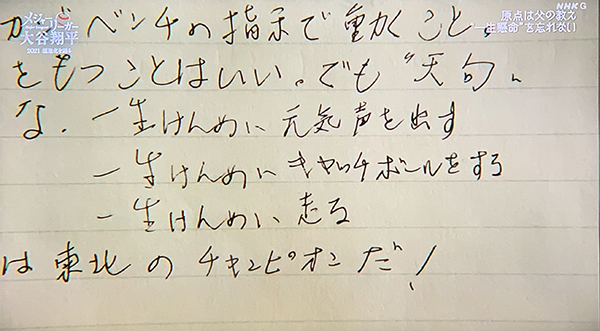 メジャーリーガー
大谷翔平
2021 超進化を語る
NHK G
原点は父の教え
“一生懸命”を忘れない
かず ベンチの指示で動くこと。
をもつことはいい。でも“天句„
な. 一生けんめいに 元気声を出す
一生けんめいに キャッチボールをする
一生けんめいに 走る
は 東北の チャンピオンだ!